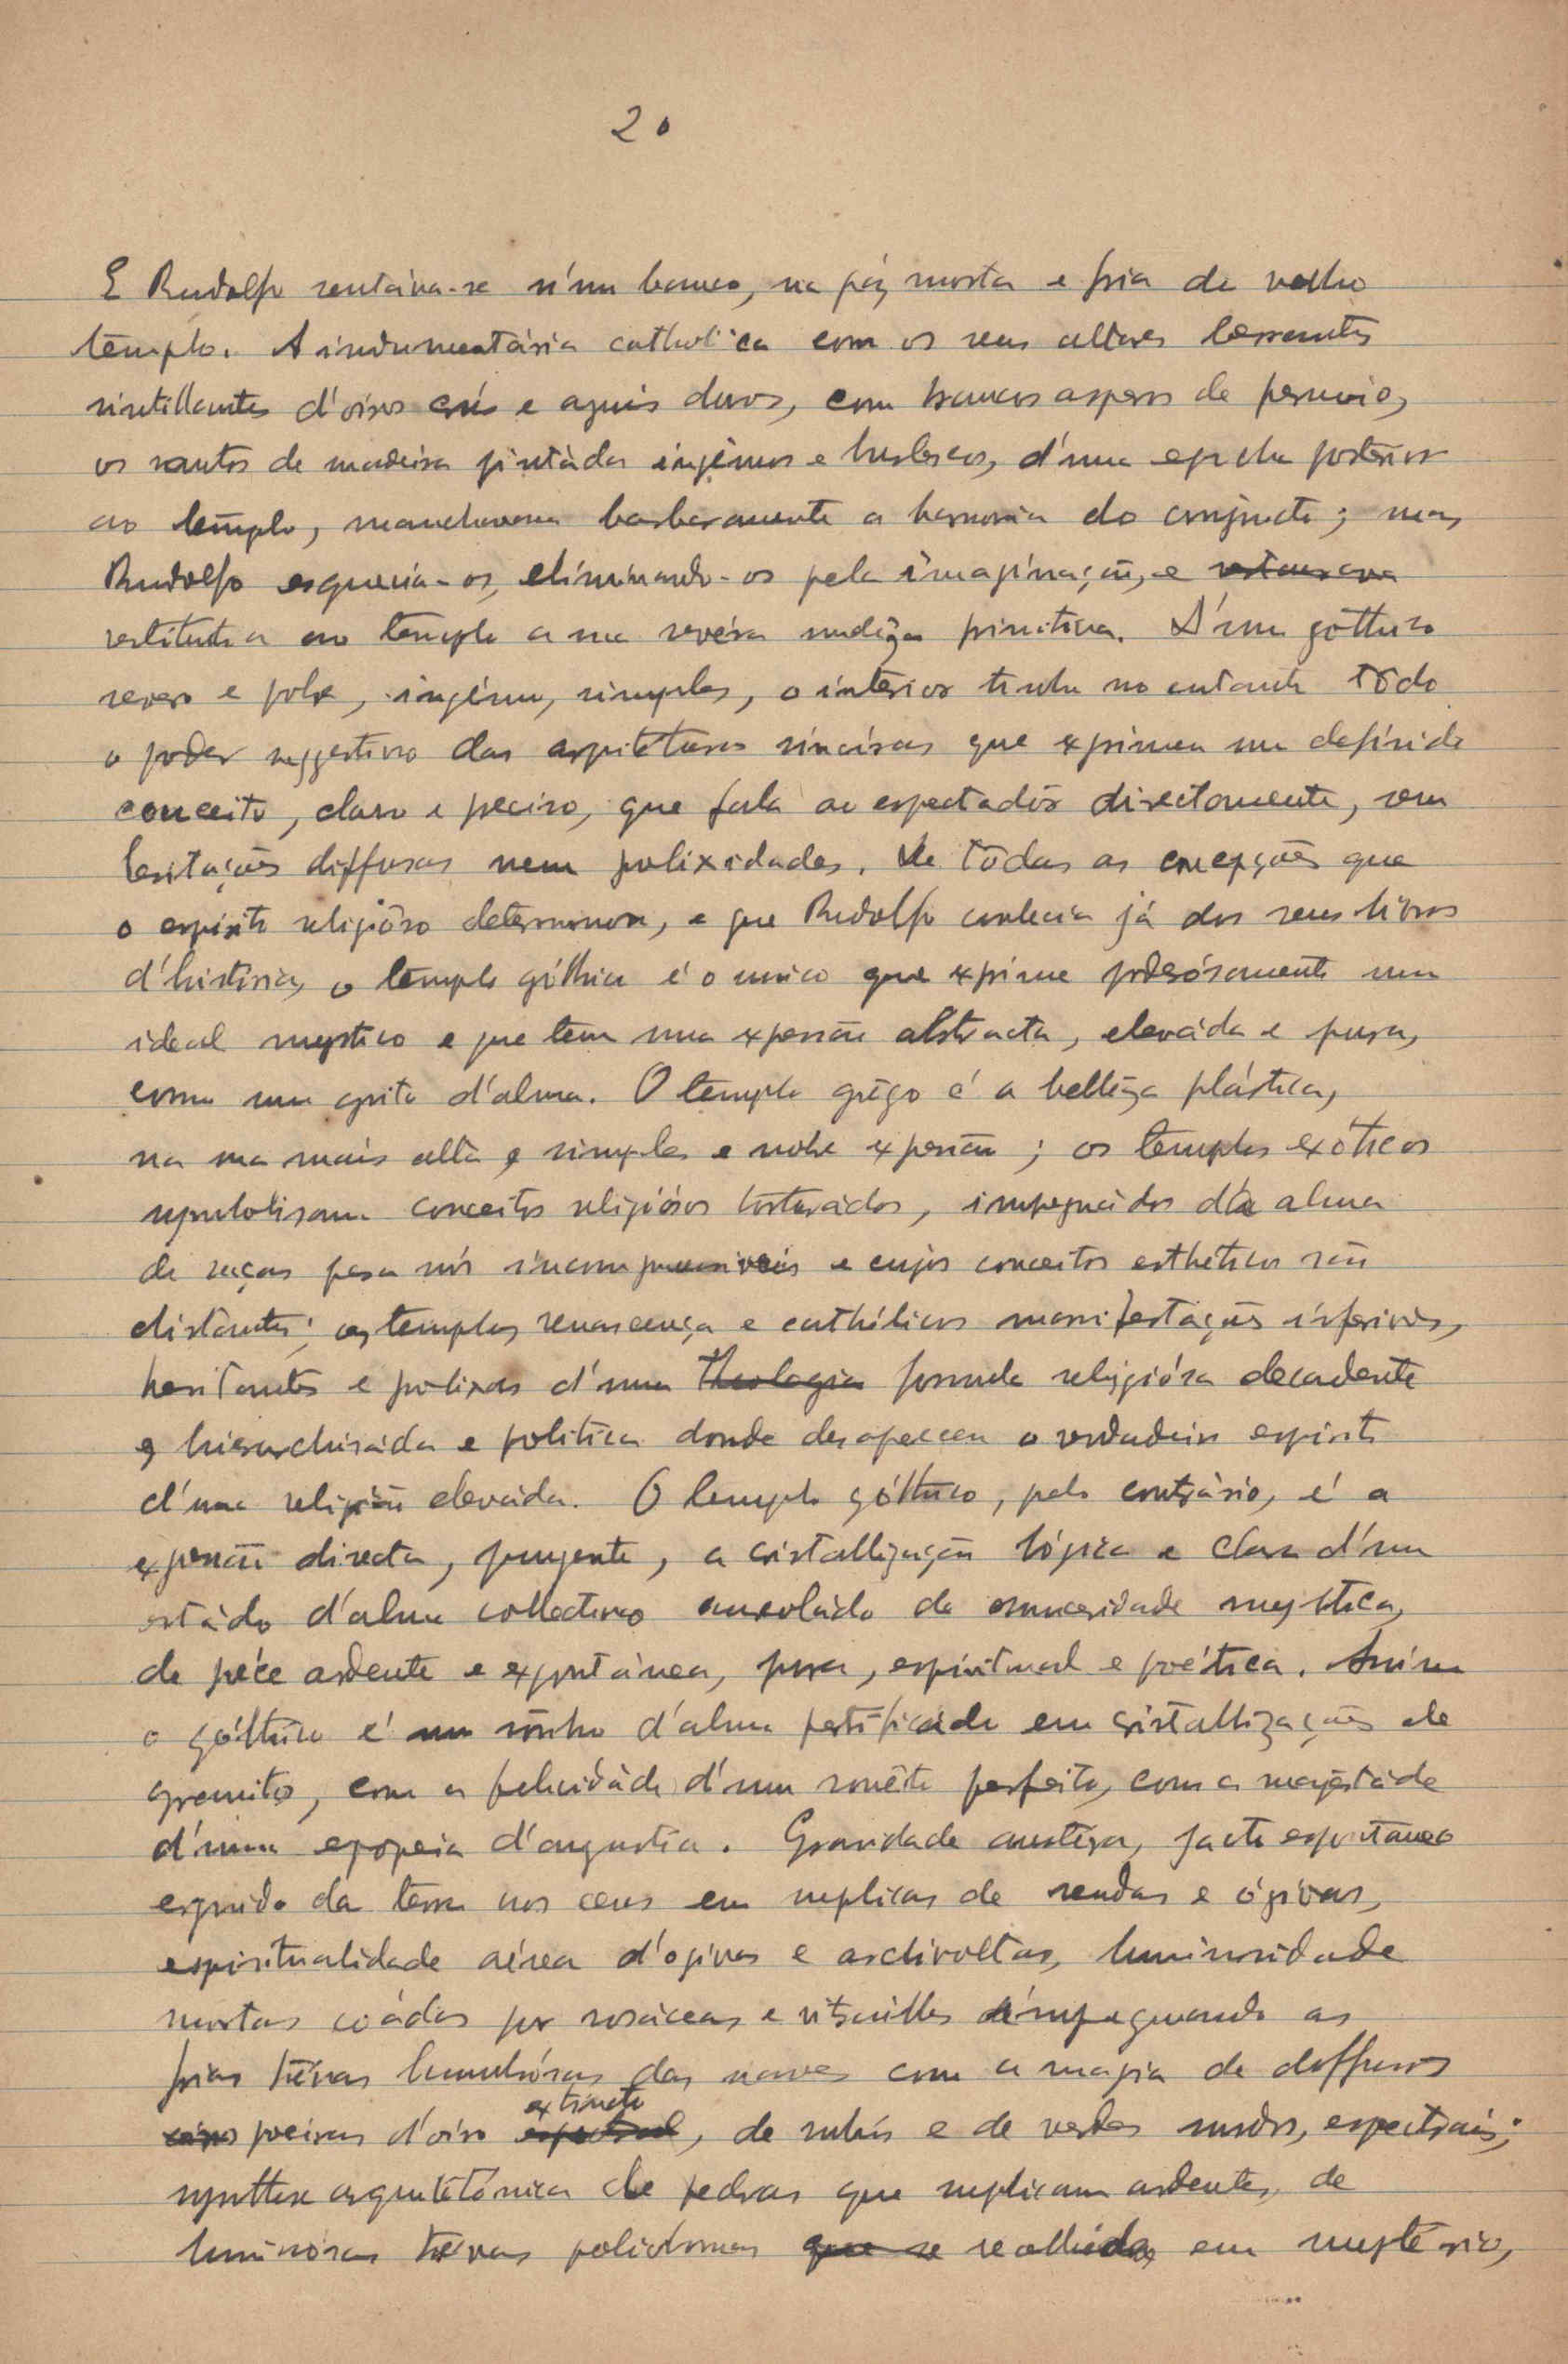 20
E Rudolfo sentáva-se n'um banco, na páz morta e fria do velho
templo. A indumentária catholica com os seus altares berrantes
sintillantes d'oiros crús e azuis duros, com brancos asperos de
os santos de madeira pintáda ingénuos e burlescos, d'uma epocha posterior
ao templo, manchavam barbaramente a harmonia do conjuncto; mas
Rudolfo esquecia-os, eliminando-os pela imaginação, e restaurava
restituia ao templo a sua sevéra nudêza primitiva. D'um gothico
severo e pobre, ingénuo, simples, o interior tinha no entanto tôdo
o poder suggestivo das arpitéturas sincéras que exprimem um definido
conceito, claro e preciso, que fala ao espectadôr directamente, sem
hesitações diffusas nem prolixidades. De tôdas as concepções que
o espirito religiôso determinou, e que Rudolfo conhecia já dos seus livros
d'história, o templo góthico é o unico que exprime poderósamente um
ideal mystico e que tem uma expressão abstracta, eleváda e pura,
como um grito d'alma. O templo grêgo é a bellêza plástica,
na sua mais alta e simples e nobre expressão; os templos exóticos
symbolisam conceitos religiósos torturádos, impregnádos da alma
de raças para nós incomprensiveis e cujos conceitos esthéticos são
distantes; os templos renascença e cathólicos manifestações inferiores,
hesitantes e prolixas d'uma theologia formula religiósa decadente
e hierarchisáda e politica donde desapareceu o verdadeiro espirito
d'uma religião eleváda. O templo góthico, pelo contrário, é a
expressão directa, pungente, a cristallização lógica e clara d'um
estádo d'alma collectivo aureoládo de sinceridade mystica,
de préce ardente e expontánea, pura, espiritual e poética. Assim
o góthico é um sônho d'alma petrificádo em cristallizações de
granito, com a felicidáde d'um sonêto perfeito, com a majestáde
d'uma epopeia d'angustia. Gravidade austéra, jacto espontâneo
erguido da terra aos ceus em suplicas de rendas e ógivas,
espiritualidade aérea d'ogivas e archivoltas, luminosidade
mortas coádas por rosáceas e vitrailles impregnando as
frias trévas das naves com a magia de diffusos
poeiras d'oiro espectral extincto, de rubis e de verdes surdos, espectrais;
synthese arquitétónica de pedras que suplicam ardentes, de
luminósas trévas policromas que se recolhidas em mystério,